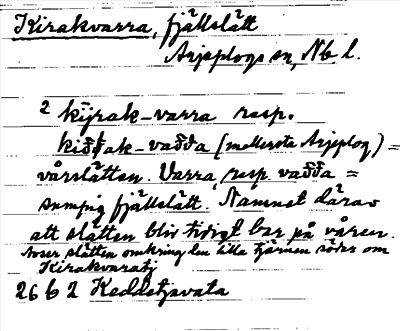 Kirakvarra, fjällslätt
Arjeplogs sn, Nb l.
2 kīrak-varra resp.
kiđđak-vađđa (mellersta Arjeplog) =
vårslätten. Varra, resp. vađđa =
sumpig fjällslätt. Namnet därav
att slätten blir tidigt bar på våren.
Avser slätten omkring den lilla tjärnen söder om
Kirakvaratj
26 b 2 Keddetjavata